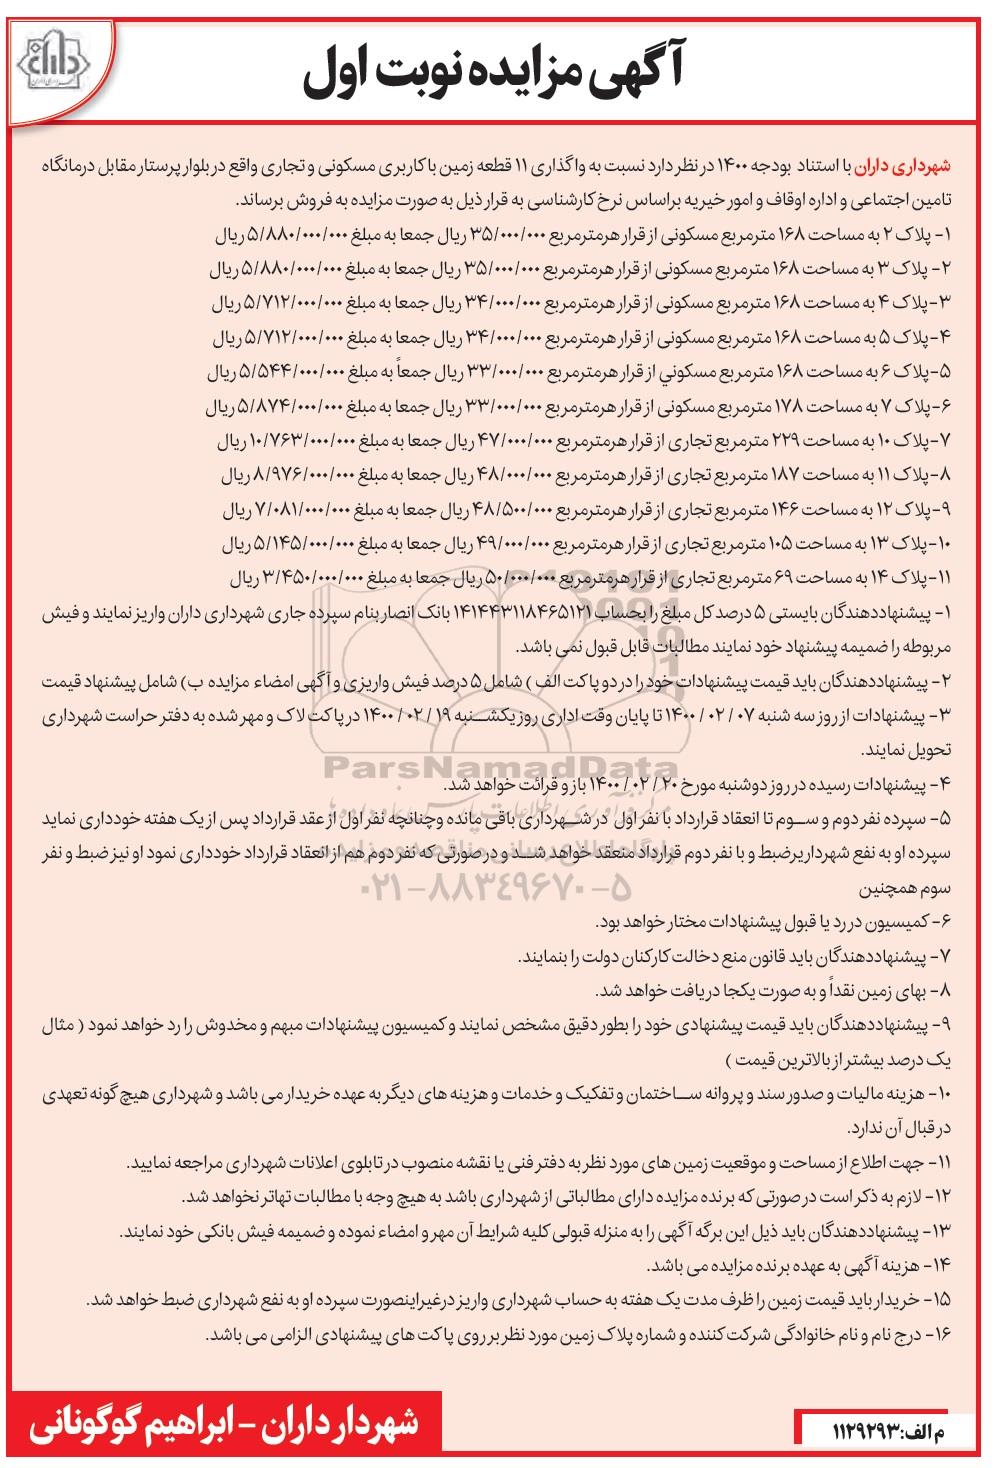 آگهی مزایده نوبت اول
داران
شهرداری داران با استناد بودجه ۱۴۰۰ در نظر دارد نسبت به واگذاری ۱۱ قطعه زمین با کاربری مسکونی و تجاری واقع در بلوار پرستار مقابل درمانگاه
تامین اجتماعی و اداره اوقاف و امور خیریه براساس نرخ کارشناسی به قرار ذیل به صورت مزایده به فروش برساند.
۱- پلاک ۲ به مساحت ۱۶۸ مترمربع مسکونی از قرار هرمترمربع ۳۵/۰۰۰/۰۰۰ ریال جمعا به مبلغ ۵/۸۸۰/۰۰۰/۰۰۰ ریال
۲- پلاک ۳ به مساحت ۱۶۸ مترمربع مسکونی از قرار هرمترمربع ۳۵/۰۰۰/۰۰۰ ریال جمعا به مبلغ ۵/۸۸۰/۰۰۰/۰۰۰ ریال
۳-پلاک ۴ به مساحت ۱۶۸ مترمربع مسکونی از قرار هرمترمربع ۳۴/۰۰۰/۰۰۰ ریال جمعا به مبلغ ۵/۷۱۲/۰۰۰/۰۰۰ ریال
۴-پلاک ۵ به مساحت ۱۶۸ مترمربع مسکونی از قرار هرمترمربع ۳۴/۰۰۰/۰۰۰ ریال جمعا به مبلغ ۵/۷۱۲/۰۰۰/۰۰۰ ریال
۵-پلاک ۶ به مساحت ۱۶۸ مترمربع مسکوني از قرار هرمترمربع ۳۳/۰۰۰/۰۰۰ ریال جمعاً به مبلغ ۵/۵۴۴/۰۰۰/۰۰۰ ریال
۶-پلاک ۷ به مساحت ۱۷۸ مترمربع مسکونی از قرار هرمترمربع ۳۳/۰۰۰/۰۰۰ ریال جمعا به مبلغ ۵/۸۷۴/۰۰۰/۰۰۰ ریال
۷-پلاک ۱۰ به مساحت ۲۲۹ مترمربع تجاری از قرار هرمترمربع ۴۷/۰۰۰/۰۰۰ ریال جمعا به مبلغ ۱۰/۷۶۳/۰۰۰/۰۰۰ ریال
۸-پلاک ۱۱ به مساحت ۱۸۷ مترمربع تجاری از قرار هرمترمربع ۴۸/۰۰۰/۰۰۰ ریال جمعا به مبلغ ۸/۹۷۶/۰۰۰/۰۰۰ ریال
۹-پلاک ۱۲ به مساحت ۱۴۶ مترمربع تجاری از قرار هرمترمربع ۴۸/۵۰۰/۰۰۰ ریال جمعا به مبلغ ۷/۰۸۱/۰۰۰/۰۰۰ ریال
۱۰-پلاک ۱۳ به مساحت ۱۰۵ مترمربع تجاری از قرار هرمترمربع ۴۹/۰۰۰/۰۰۰ ریال جمعا به مبلغ ۵/۱۴۵/۰۰۰/۰۰۰ ریال
۱۱-پلاک ۱۴ به مساحت ۶۹ مترمربع تجاری از قرار هرمترمربع ۵۰/۰۰۰/۰۰۰ ریال جمعا به مبلغ ۳/۴۵۰/۰۰۰/۰۰۰ ریال
۱- پیشنهاددهندگان بایستی ۵ درصد کل مبلغ را بحساب ۱۴۱۴۴۳۱۱۸۴۶۵۱۲۱ بانک انصار بنام سپرده جاری شهرداری داران واریز نمایند و فیش
مربوطه را ضمیمه پیشنهاد خود نمایند مطالبات قابل قبول نمی باشد.
۲- پیشنهاددهندگان باید قیمت پیشنهادات خود را در دو پاکت الف ) شامل ۵ درصد فیش واریزی و آگهی امضاء مزایده ب) شامل پیشنهاد قیمت
۳- پیشنهادات از روز سه شنبه ۰۷ / ۰۲ / ۱۴۰۰ تا پایان وقت اداری روز یکشنبه ۱۹ / ۰۲ / ۱۴۰۰ در پاکت لاک و مهر شده به دفتر حراست شهرداری
تحویل نمایند.
ParsNamadData
۴- پیشنهادات رسیده در روز دوشنبه مورخ ۲۰ / ۰۲ / ۱۴۰۰ باز و قرائت خواهد شد.
۵- سپرده نفر دوم و سوم تا انعقاد قرارداد با نفر اول در شهرداری باقی مانده وچنانچه نفر اول از عقد قرارداد پس از یک هفته خودداری نماید
سپرده او به نفع شهرداریر ضبط و با نفر دوم قرارداد منعقد خواهد شد و در صورتی که نفر دوم هم از انعقاد قرارداد خودداری نمود او نیز ضبط و نفر
سوم همچنین
۰۲۱-۸۸۳۴۹۶۷۰-۵
۶- کمیسیون در رد یا قبول پیشنهادات مختار خواهد بود.
۷- پیشنهاددهندگان باید قانون منع دخالت کارکنان دولت را بنمایند.
۸- بهای زمین نقداً و به صورت یکجا دریافت خواهد شد.
۹- پیشنهاددهندگان باید قیمت پیشنهادی خود را بطور دقیق مشخص نمایند و کمیسیون پیشنهادات مبهم و مخدوش را رد خواهد نمود ( مثال
یک درصد بیشتر از بالاترین قیمت )
۱۰- هزینه مالیات و صدور سند و پروانه ساختمان و تفکیک و خدمات و هزینه های دیگر به عهده خریدار می باشد و شهرداری هیچ گونه تعهدی
در قبال آن ندارد.
۱۱- جهت اطلاع از مساحت و موقعیت زمین های مورد نظر به دفتر فنی یا نقشه منصوب در تابلوی اعلانات شهرداری مراجعه نمایید.
۱۲- لازم به ذکر است در صورتی که برنده مزایده دارای مطالباتی از شهرداری باشد به هیچ وجه با مطالبات تهاتر نخواهد شد.
۱۳- پیشنهاددهندگان باید ذیل این برگه آگهی را به منزله قبولی کلیه شرایط آن مهر و امضاء نموده و ضمیمه فیش بانکی خود نمایند.
۱۴- هزینه آگهی به عهده برنده مزایده می باشد.
۱۵- خریدار باید قیمت زمین را ظرف مدت یک هفته به حساب شهرداری واریز درغیراینصورت سپرده او به نفع شهرداری ضبط خواهد شد.
۱۶- درج نام و نام خانوادگی شرکت کننده و شماره پلاک زمین مورد نظر بر روی پاکت های پیشنهادی الزامی می باشد.
شهردار داران - ابراهیم گوگونانی
م الف: ۱۱۲۹۲۹۳